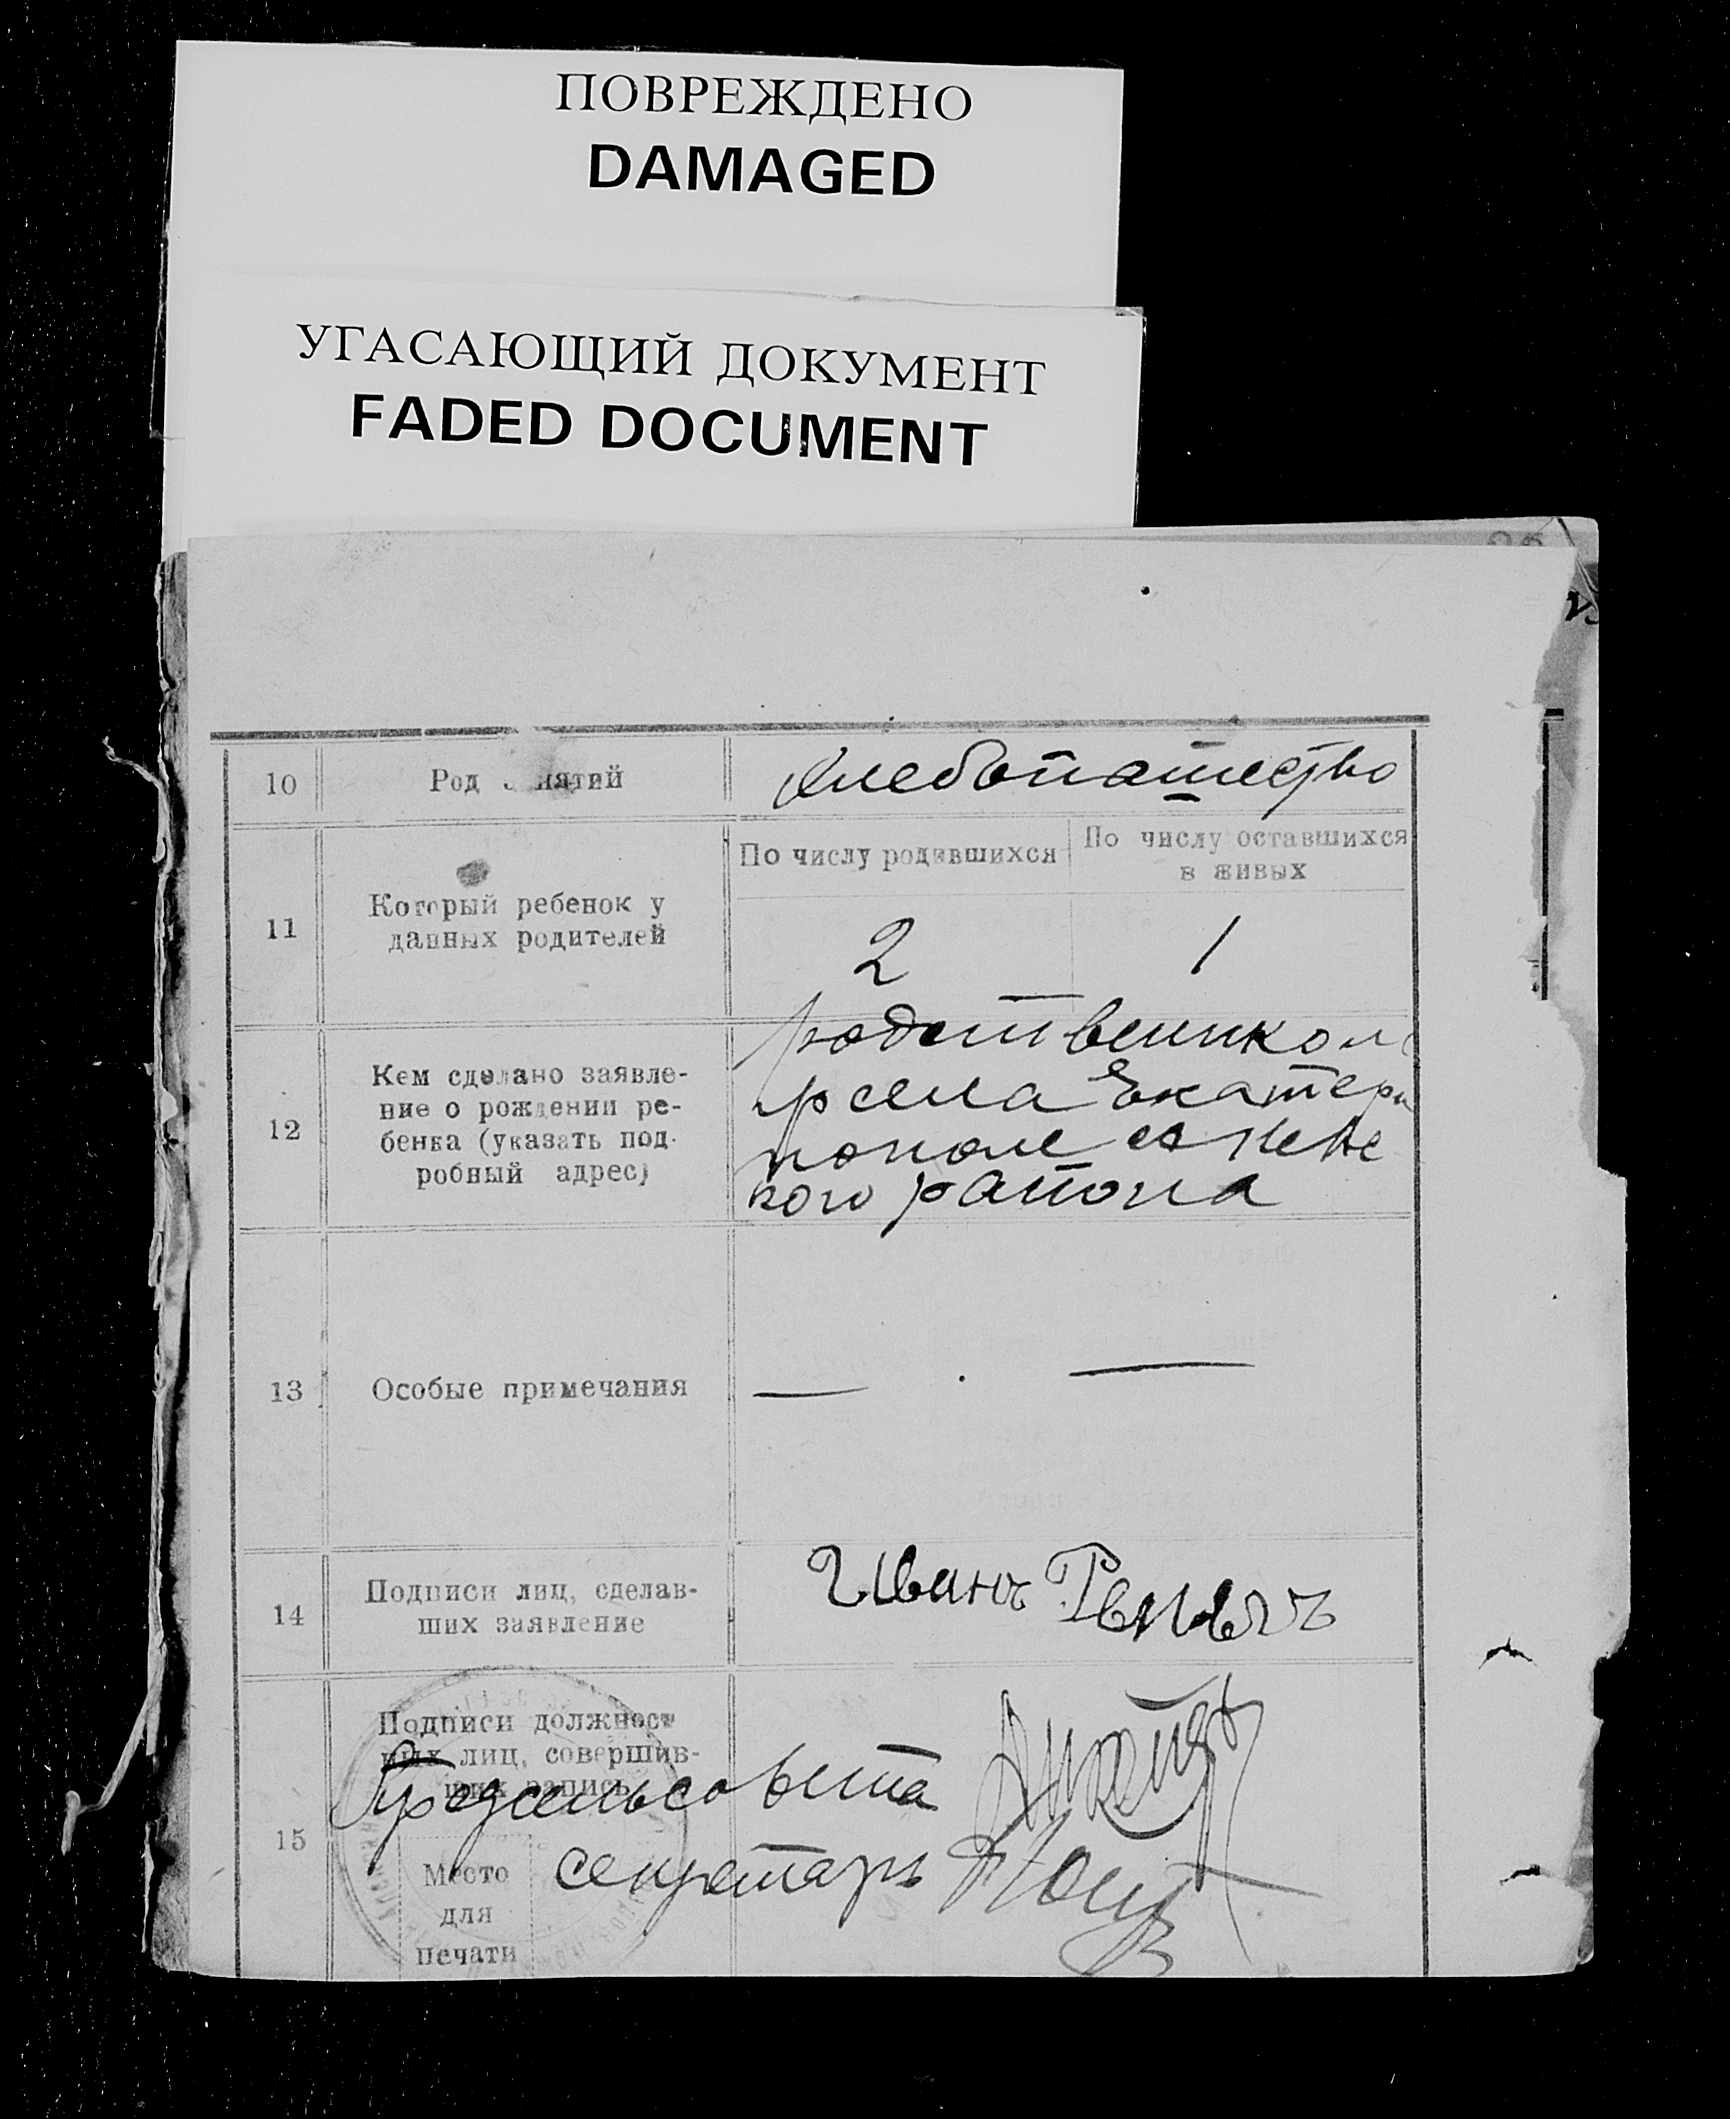 ПОВРЕЖДЕНО
DAMAGED
УГАСАЮЩИЙ ДОКУМЕНТ
FADED DOCUMENT
10 Род нятий хлебопашество
11 Который ребенок у данных родителей
По числу родившихся По числу оставшихся в живых
2 1
12 Кем сделано заявле-
ние о рождении ре-
бенка (указать под-
робный адрес)
родствеником
села Екатери
кого района
13 Особые примечания — —
14 Подписи лиц, сделав-
ших заявление
Иванъ
15 Подписи должност
ных лиц, совершив-
ших запись
Предсельсовета
секретарь
Место
для
печати